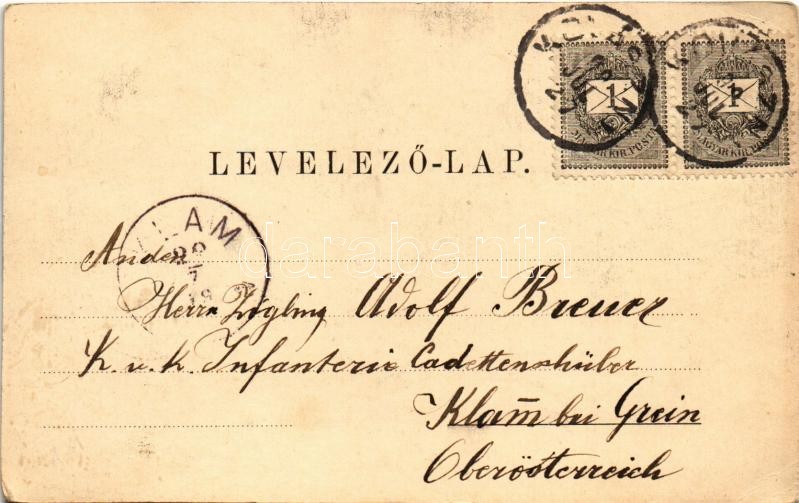 LEVELEZŐ-LAP.
1 1
MAGYAR KIR. POSTA MAGYAR KIR.
KLAM
An den
Herrn Zögling Adolf Breuer
K. u. k. Infanterie Cadettenshüber
Klam̄ bei Grein
Oberösterreich
darabanth